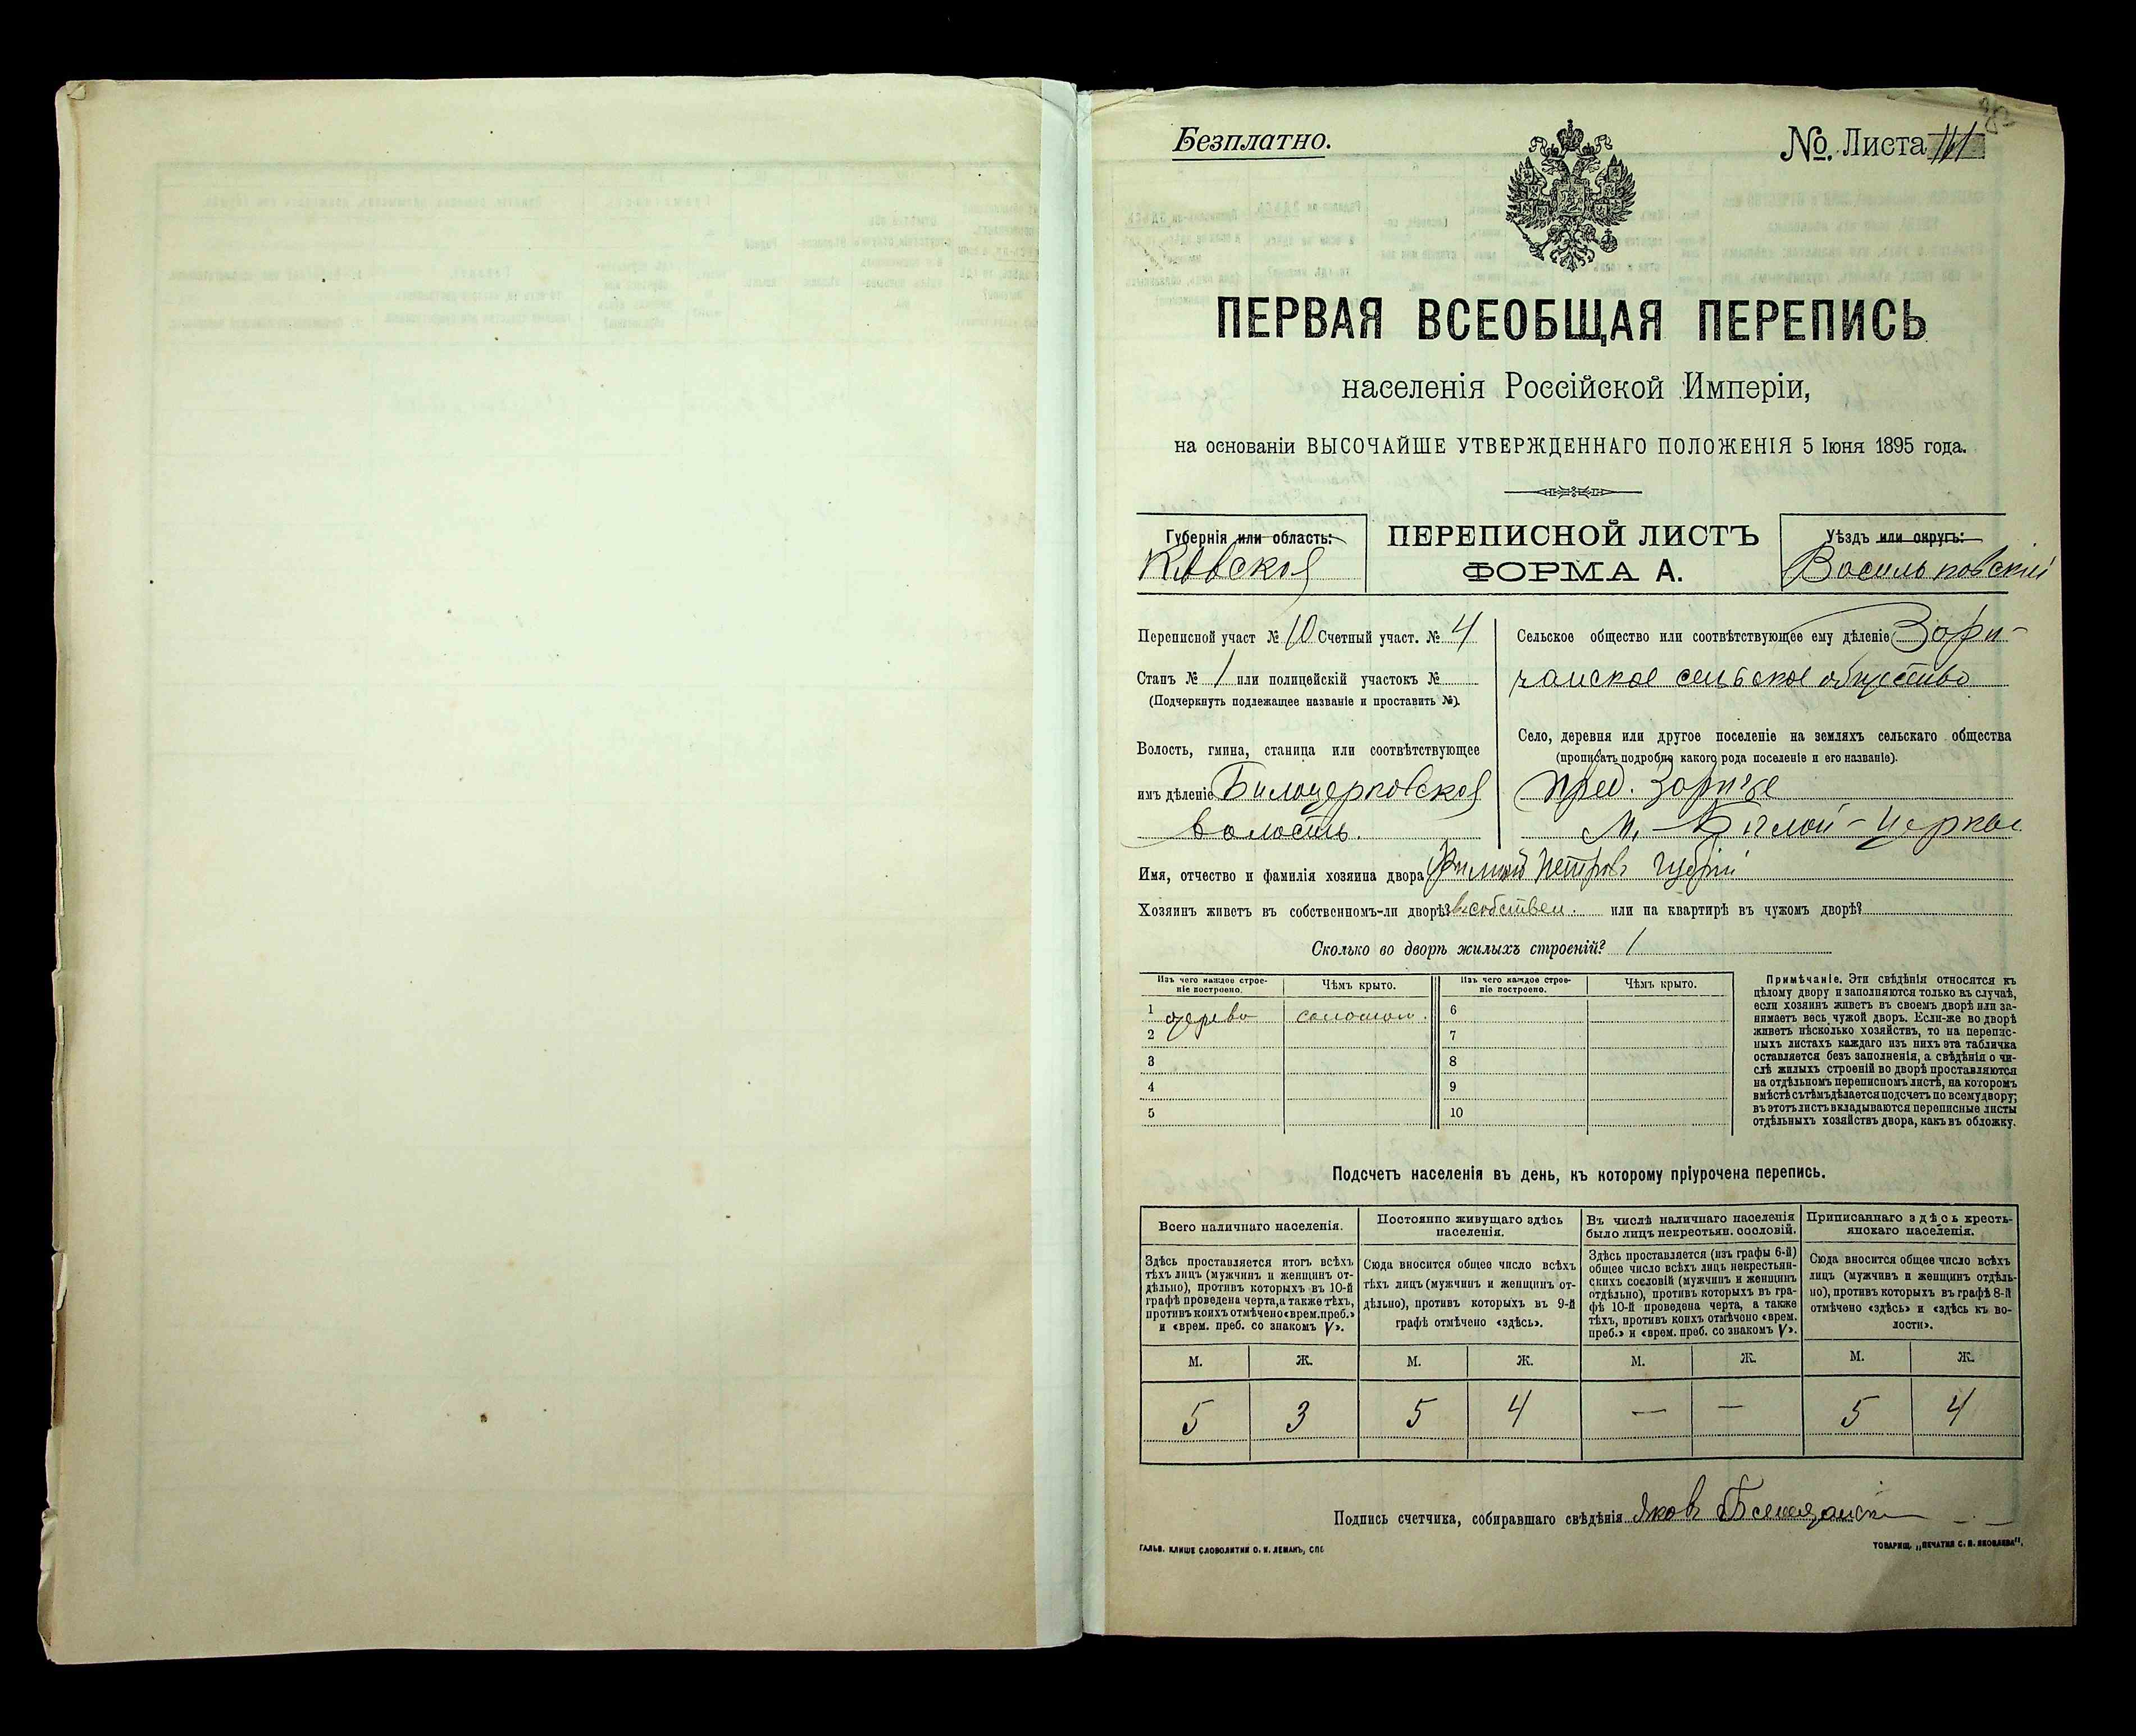 Безплатно.
№ Листа
ПЕРВАЯ ВСЕОБЩАЯ ПЕРЕПИСЬ
населенія Россійской Имперіи,
на основаніи ВЫСОЧАЙШЕ УТВЕРЖДЕННАГО ПОЛОЖЕНІЯ 5 Іюня 1895 года.
Губернія или область:
ПЕРЕПИСНОЙ ЛИСТЪ
ФОРМА А.
Уѣздъ или округъ:
Васильковскій
Переписной участ № 10 Счетный участ. № 4
Станъ № 1 или полицейскій участокъ №
(Подчеркнуть подлежащее названіе и проставить №).
Волость, гмина, станица или соотвѣтствующее
имъ дѣленіе Билоцерковская
волость.
Сельское общество или соотвѣтствующее ему дѣленіе Зари-
чанское сельское общество
Село, деревня или другое поселеніе на земляхъ сельскаго общества
(прописать подробно какого рода поселеніе и его названіе).
пред. Заричье
М. Бѣлой-Церкви
Имя, отчество и фамилія хозяина двора Петровъ
Хозяинъ живетъ въ собственномъ-ли дворѣ? въ собствен. или на квартирѣ въ чужомъ дворѣ?
Сколько во дворѣ жилыхъ строеній? 1
Изъ чего каждое строе-
ніе построено.
Чѣмъ крыто.
Изъ чего каждое строе-
ніе построено.
Чѣмъ крыто.
1 дерево солом. 6
2 7
3 8
4 9
5 10
Примѣчаніе. Эти свѣдѣнія относятся къ
цѣлому двору и заполняются только въ случаѣ,
если хозяинъ живетъ въ своемъ дворѣ или за-
нимаетъ весь чужой дворъ. Если-же во дворѣ
живетъ нѣсколько хозяйствъ, то на перепис-
ныхъ листахъ каждаго изъ нихъ эта табличка
оставляется безъ заполненія, а свѣдѣнія о чи-
слѣ жилыхъ строеній во дворѣ проставляются
на отдѣльномъ переписномъ листѣ, на которомъ
вмѣстѣ съ тѣмъ дѣлается подсчетъ по всему двору;
въ этотъ листъ вкладываются переписные листы
отдѣльныхъ хозяйствъ двора, какъ въ обложку.
Подсчетъ населенія въ день, къ которому пріурочена перепись.
Всего наличнаго населенія.
Постоянно живущаго здѣсь
населенія.
Въ числѣ наличнаго населенія
было лицъ некрестьян. сословій.
Приписаннаго здѣсь кресть-
янскаго населенія.
Здѣсь проставляется итогъ всѣхъ
тѣхъ лицъ (мужчинъ и женщинъ от-
дѣльно), противъ которыхъ въ 10-й
графѣ проведена черта, а также тѣхъ,
противъ коихъ отмѣчено «врем. преб.»
и «врем. преб. со знакомъ V».
Сюда вносится общее число всѣхъ
тѣхъ лицъ (мужчинъ и женщинъ от-
дѣльно), противъ которыхъ въ 9-й
графѣ отмѣчено «здѣсь».
Здѣсь проставляется (изъ графы 6-й)
общее число всѣхъ лицъ некрестьян-
скихъ сословій (мужчинъ и женщинъ
отдѣльно), противъ которыхъ въ гра-
фѣ 10-й проведена черта, а также
тѣхъ, противъ коихъ отмѣчено «врем.
преб.» и «врем. преб. со знакомъ V».
Сюда вносится общее число всѣхъ
лицъ (мужчинъ и женщинъ отдѣль-
но), противъ которыхъ въ графѣ 8-й
отмѣчено «здѣсь» и «здѣсь къ во-
лости».
М. Ж. М. Ж. М. Ж. М. Ж.
5 3 5 4 — — 5 4
Подпись счетчика, собиравшаго свѣдѣнія Яковъ
ГАЛЬВ. КЛИШЕ СЛОВОЛИТНИ О. И. ЛЕМАНЪ, СПБ
ТОВАРИЩ. „ПЕЧАТНЯ С. П. ЯКОВЛЕВА".